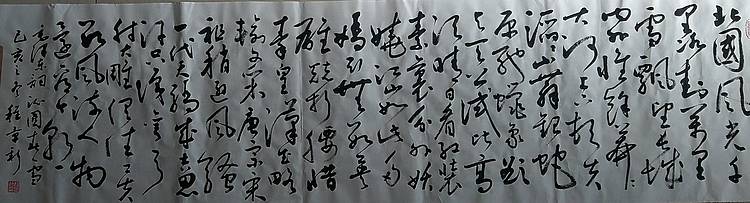 北國風光千
里冰封萬里
雪飄望長城
内外惟餘莽々
大河上下頓失
滔滔山舞銀蛇
原馳蠟象欲
與天公試比高
須晴日看紅裝
素裹分外妖
嬈江山如此多
嬌引無數英
雄競折腰惜
秦皇漢武略
輸文采唐宗宋
祖稍遜風騷
一代天驕成吉思
汗只識彎弓
射大雕俱往矣
數風流人物
還看今朝
毛澤東詞沁園春雪
己亥之冬程